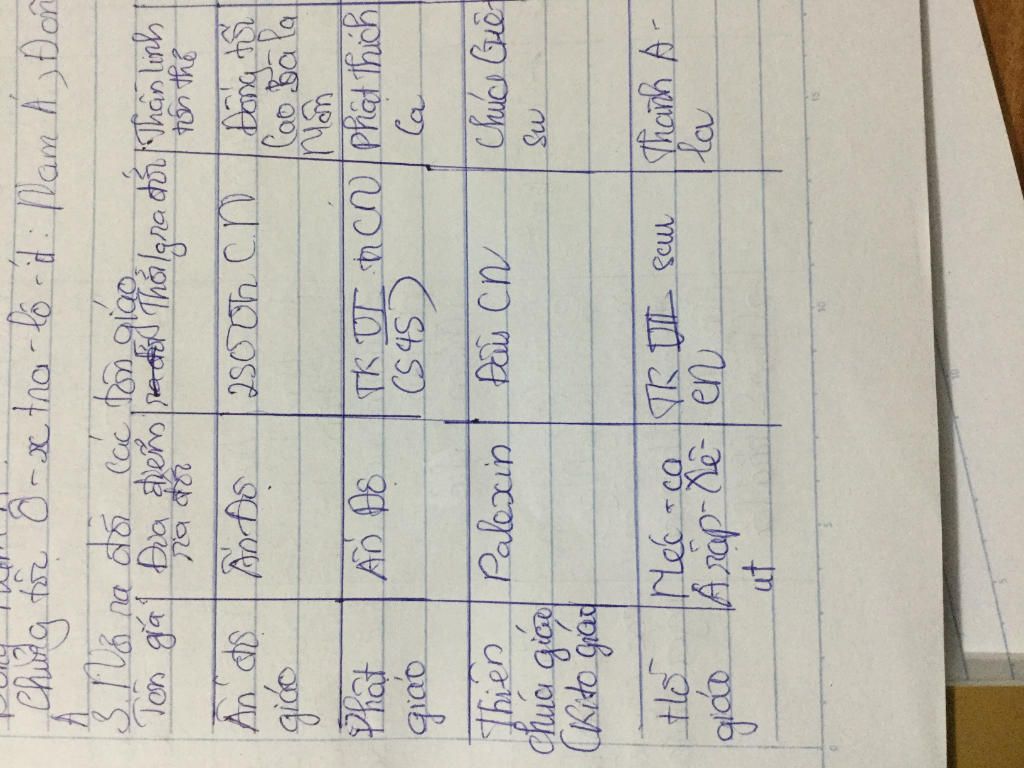 Chủng tộc Ô-xtra-lô-ít: Nam Á, Đôn
A
3. Nơi ra đời các tôn giáo
Tôn giá
Địa điểm
ra đời
Thời gra đời
Thần linh
tôn thờ
Ấn độ
giáo
Ấn Độ
2500 Tr CN
Đấng tối
Cao Bà la
Môn
Phật
giáo
Ấn Độ
TK VI tr CN
(545)
Phật thích
Ca
Thiên
chúa giáo
(Kito giáo
Palexin
Đầu CN
Chúa Giê
su
Hồi
giáo
Mec-ca
Ả rập-Xê-
ut
TK VII sau
CN
Thánh A-
la